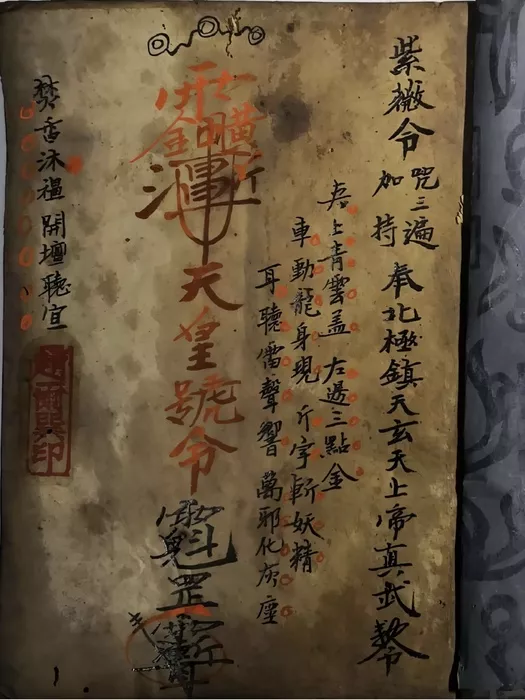 紫薇令
咒三遍
加持
奉北極鎮天玄天上帝真武
上青雲蓋 左邊三點金
車動龍身現 斤字斬妖精
耳聽雷聲響 萬邪化灰塵
天皇號令
罡
焚香沐 開壇聽宣
印